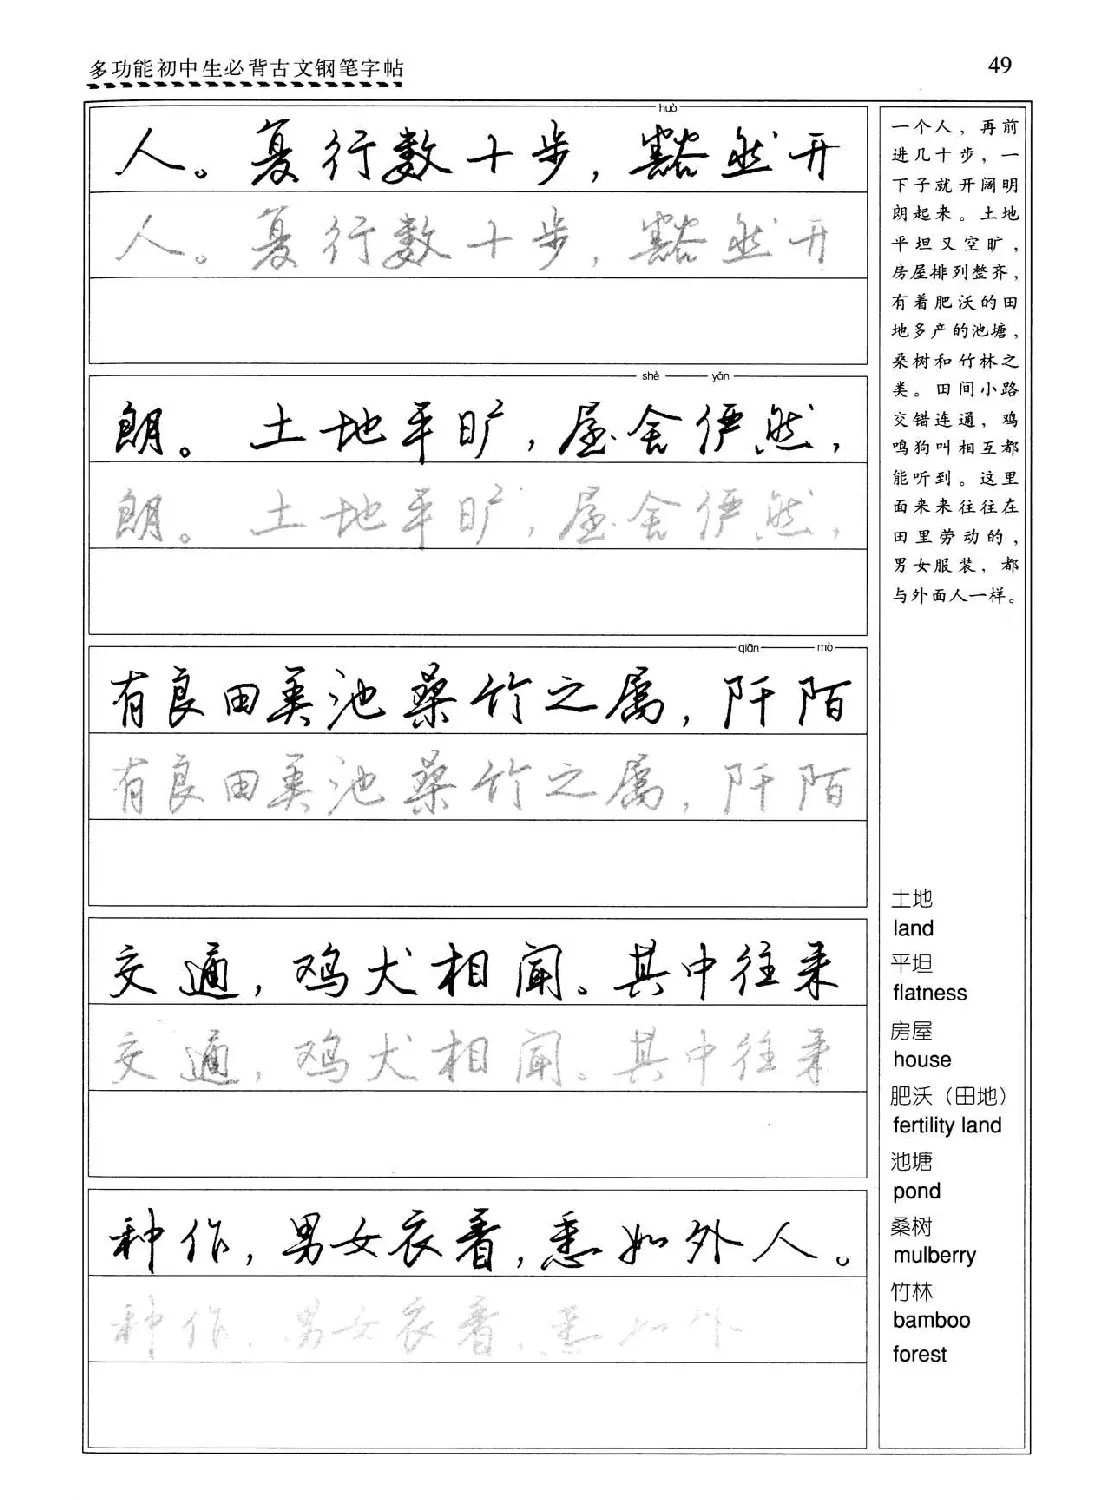 多功能初中生必背古文钢笔字帖
49
huò
人。复行数十步，豁然开
人。复行数十步，豁然开
shè yǎn
朗。土地平旷，屋舍俨然，
朗。土地平旷，屋舍俨然，
qiān mò
有良田美池桑竹之属，阡陌
有良田美池桑竹之属，阡陌
交通，鸡犬相闻。其中往来
交通，鸡犬相闻。其中往来
种作，男女衣着，悉如外人。
种作，男女衣着，悉如外
一个人，再前
进几十步，一
下子就开阔明
朗起来。土地
平坦又空旷，
房屋排列整齐，
有着肥沃的田
地多产的池塘，
桑树和竹林之
类。田间小路
交错连通，鸡
鸣狗叫相互都
能听到。这里
面来来往往在
田里劳动的，
男女服装，都
与外面人一样。
土地
land
平坦
flatness
房屋
house
肥沃（田地）
fertility land
池塘
pond
桑树
mulberry
竹林
bamboo
forest